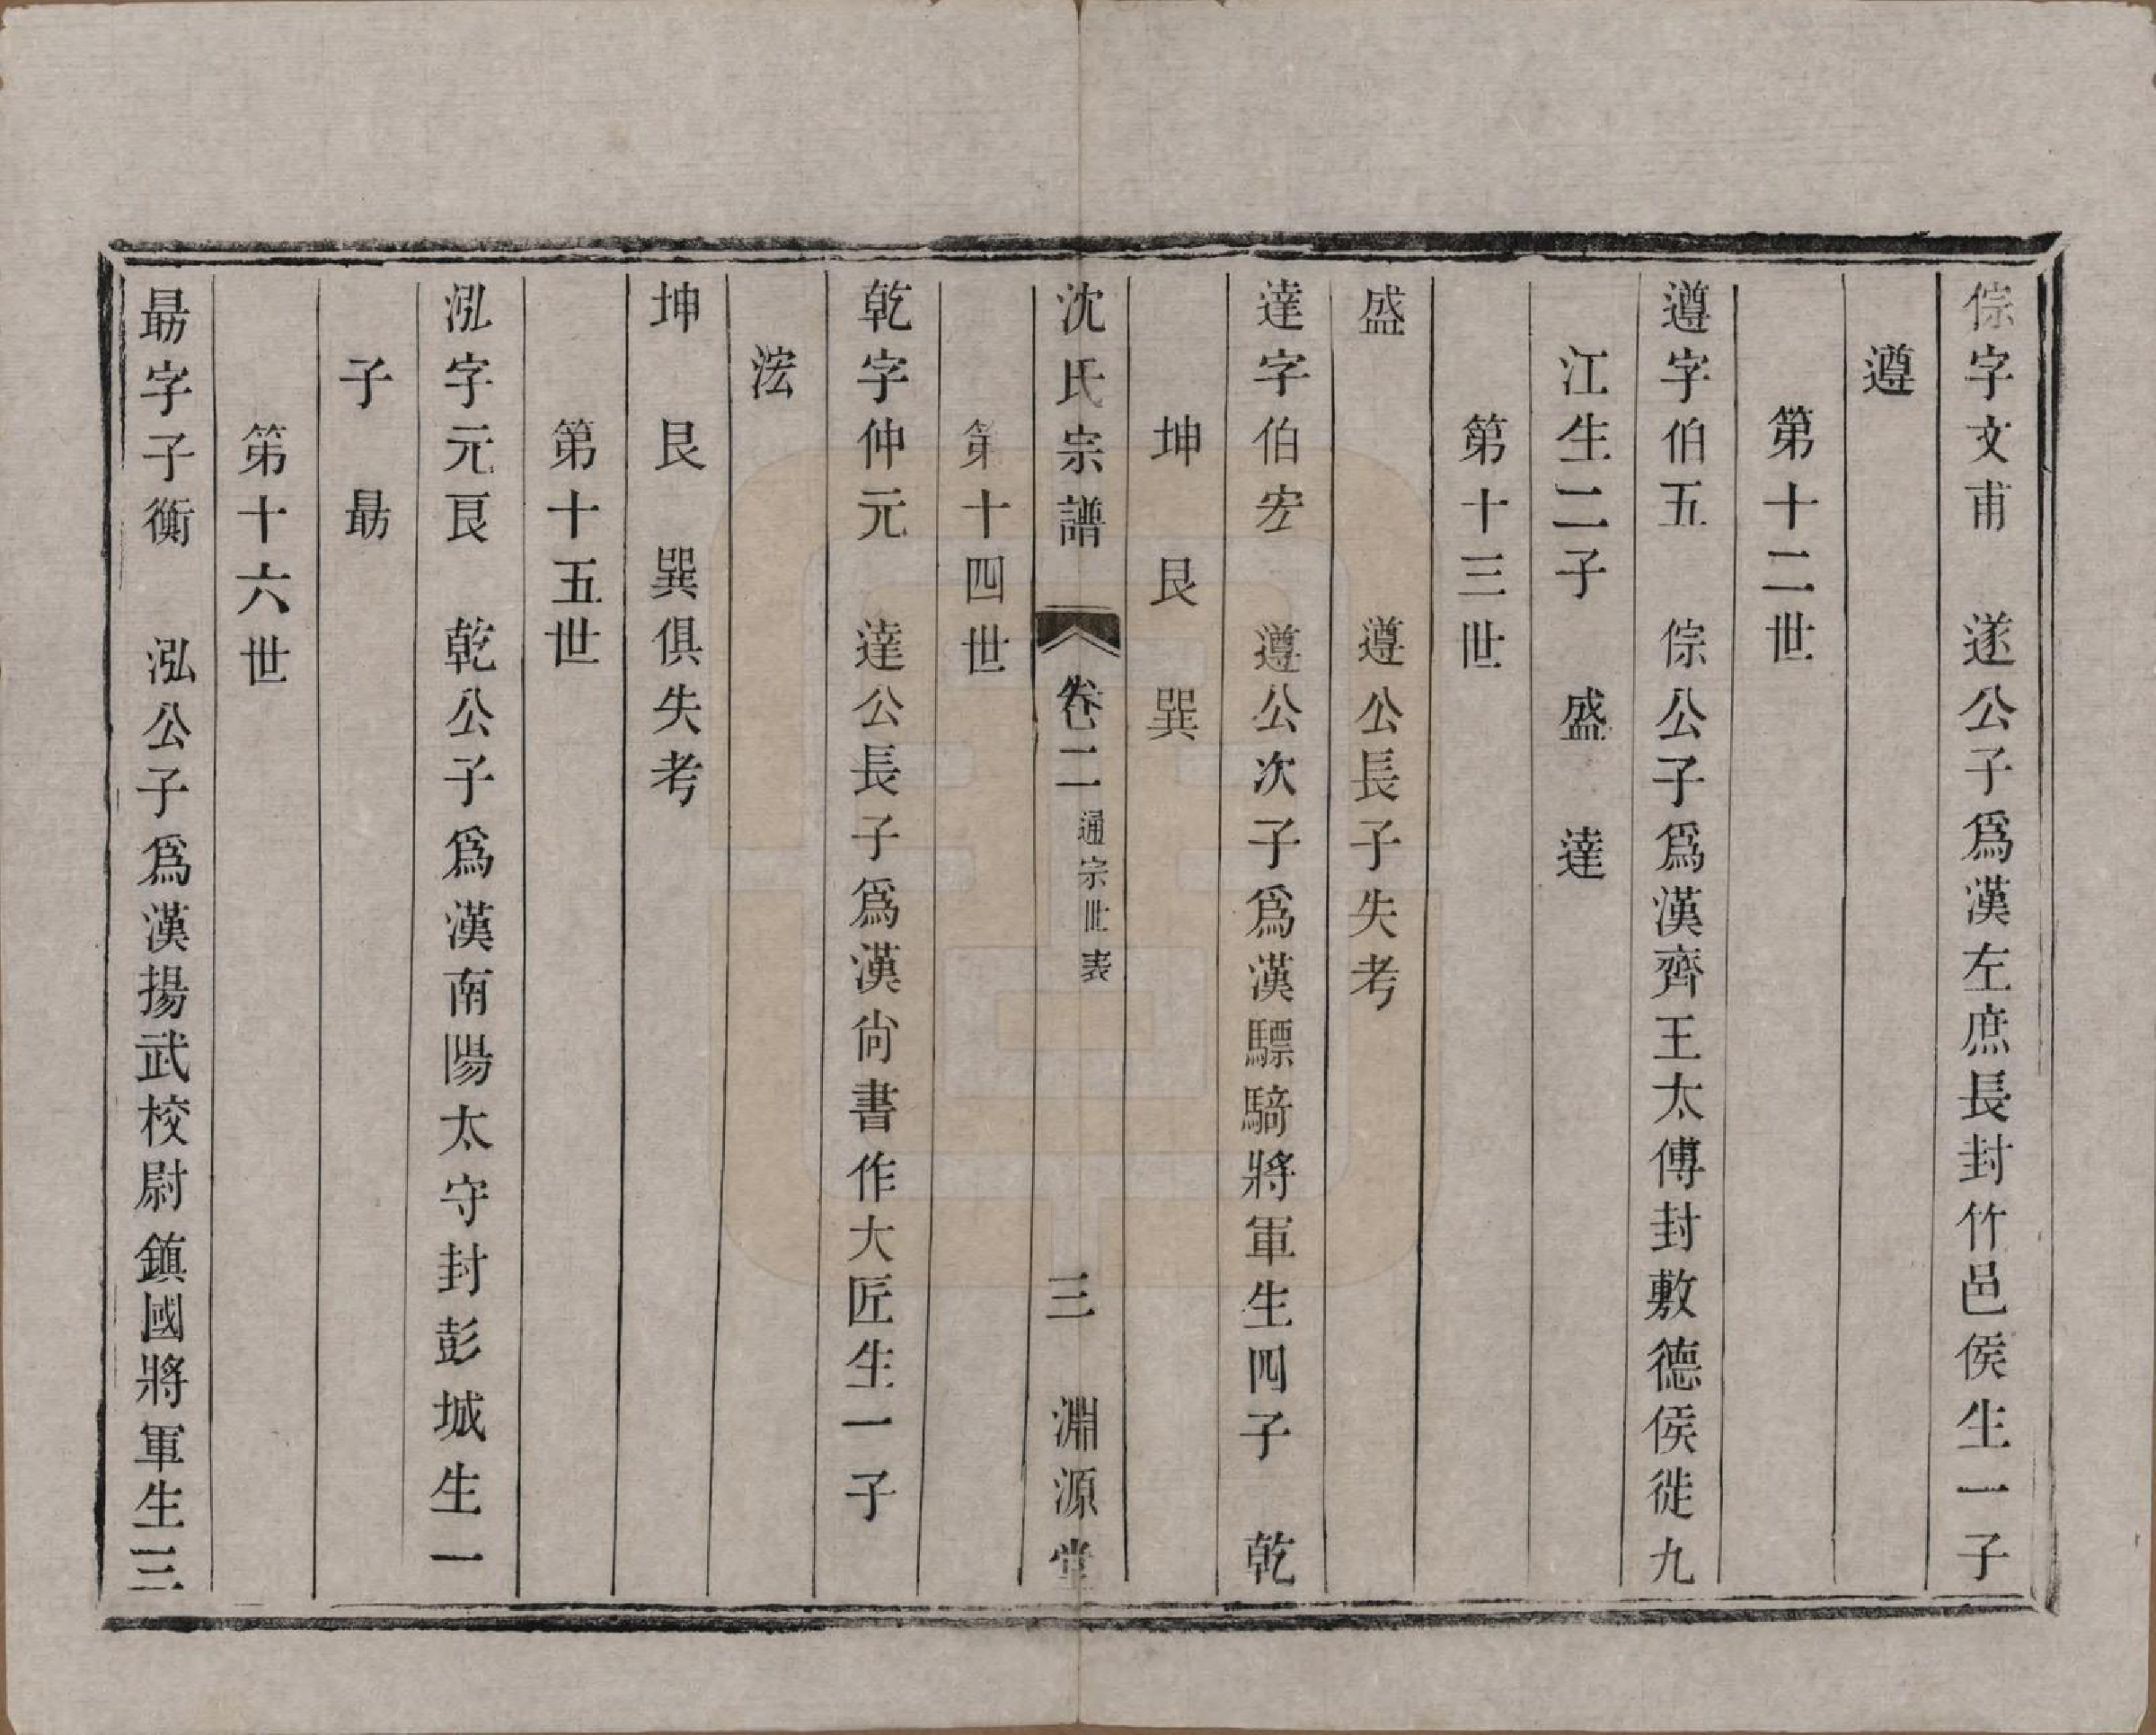 倧字文甫　遂公子爲漢左庶長封竹邑侯生一子
遵
第十二世
遵字伯五　倧公子爲漢齊王太傅封敷德侯徙九
江生二子　盛　達
第十三世
盛　　　　遵公長子失考
達字伯宏　遵公次子爲漢驃騎將軍生四子　乾
坤　艮　巽
沈氏宗譜　卷二　通宗世表　三　淵源堂
第十四世
乾字仲元　達公長子爲漢尙書作大匠生一子
浤
坤　艮　巽俱失考
第十五世
泓字元艮　乾公子爲漢南陽太守封彭城生一
子　勗
第十六世
勗字子衡　泓公子爲漢揚武校尉鎮國將軍生三